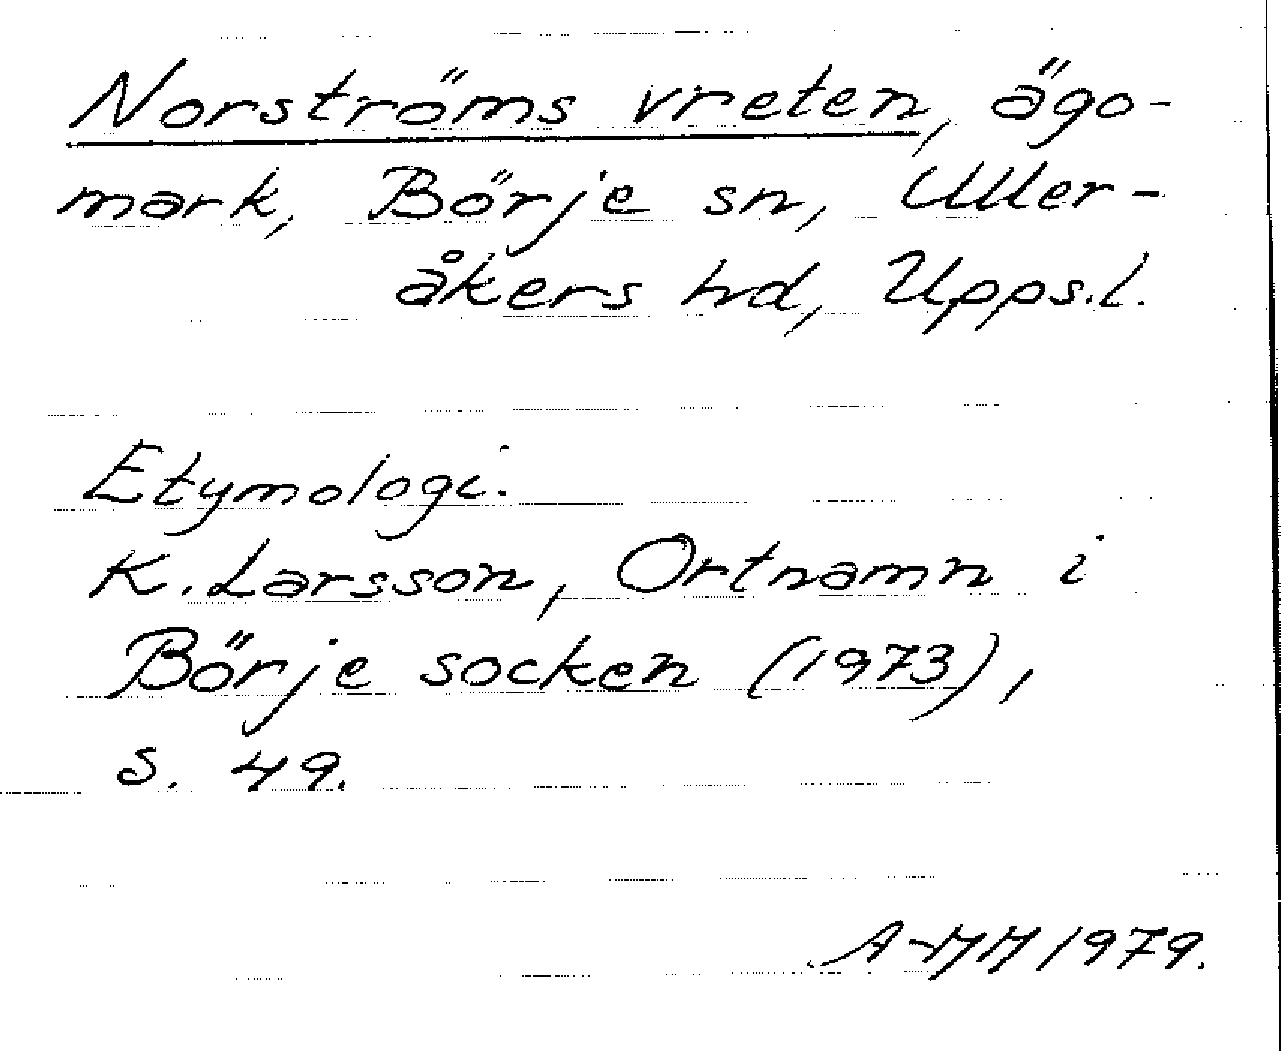 Norströms vreten, ägo-
mark, Börje sn, Uller-
åkers hd, Upps.l.
Etymologi.
K. Larsson, Ortnamn i
Börje socken (1973),
s. 49.
1979.